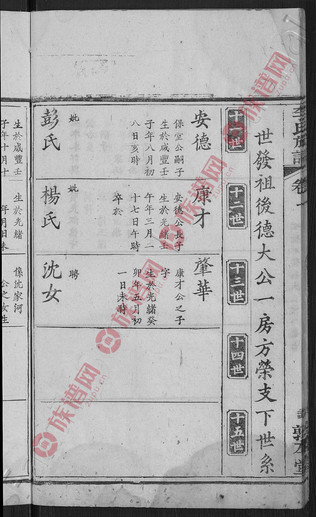 李氏族譜 卷一
世發祖後德大公一房方榮支下世系
十一世
十二世
十三世
十四世
十五世
安德
保宣公嗣子
生於咸豐壬
子年八月初
八日亥時
妣
彭氏
康才
安德公長子
生於光緒壬
午年三月一
十七日午時
卒於
妣
楊氏
肇華
康才公之子
字
生於光緒癸
卯年五月初
一日未時
聘
沈女
生於咸豐壬
子年十月十
像沈家河
公之女生
族谱网